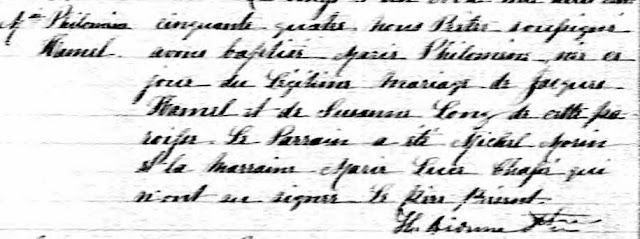 Mie Philomène cinquante quatre, nous Prêtre soussigné
Hamel. avons baptisé Marie Philomène, née ce
jour du légitime mariage de Jacques
Hamel et de Susanne Long de cette pa
roisse. Le Parrain a été Michel Morin
et la Marraine Marie Luce Chapé qui
n'ont su signer. Le père présent.
H. Dionne Ptre